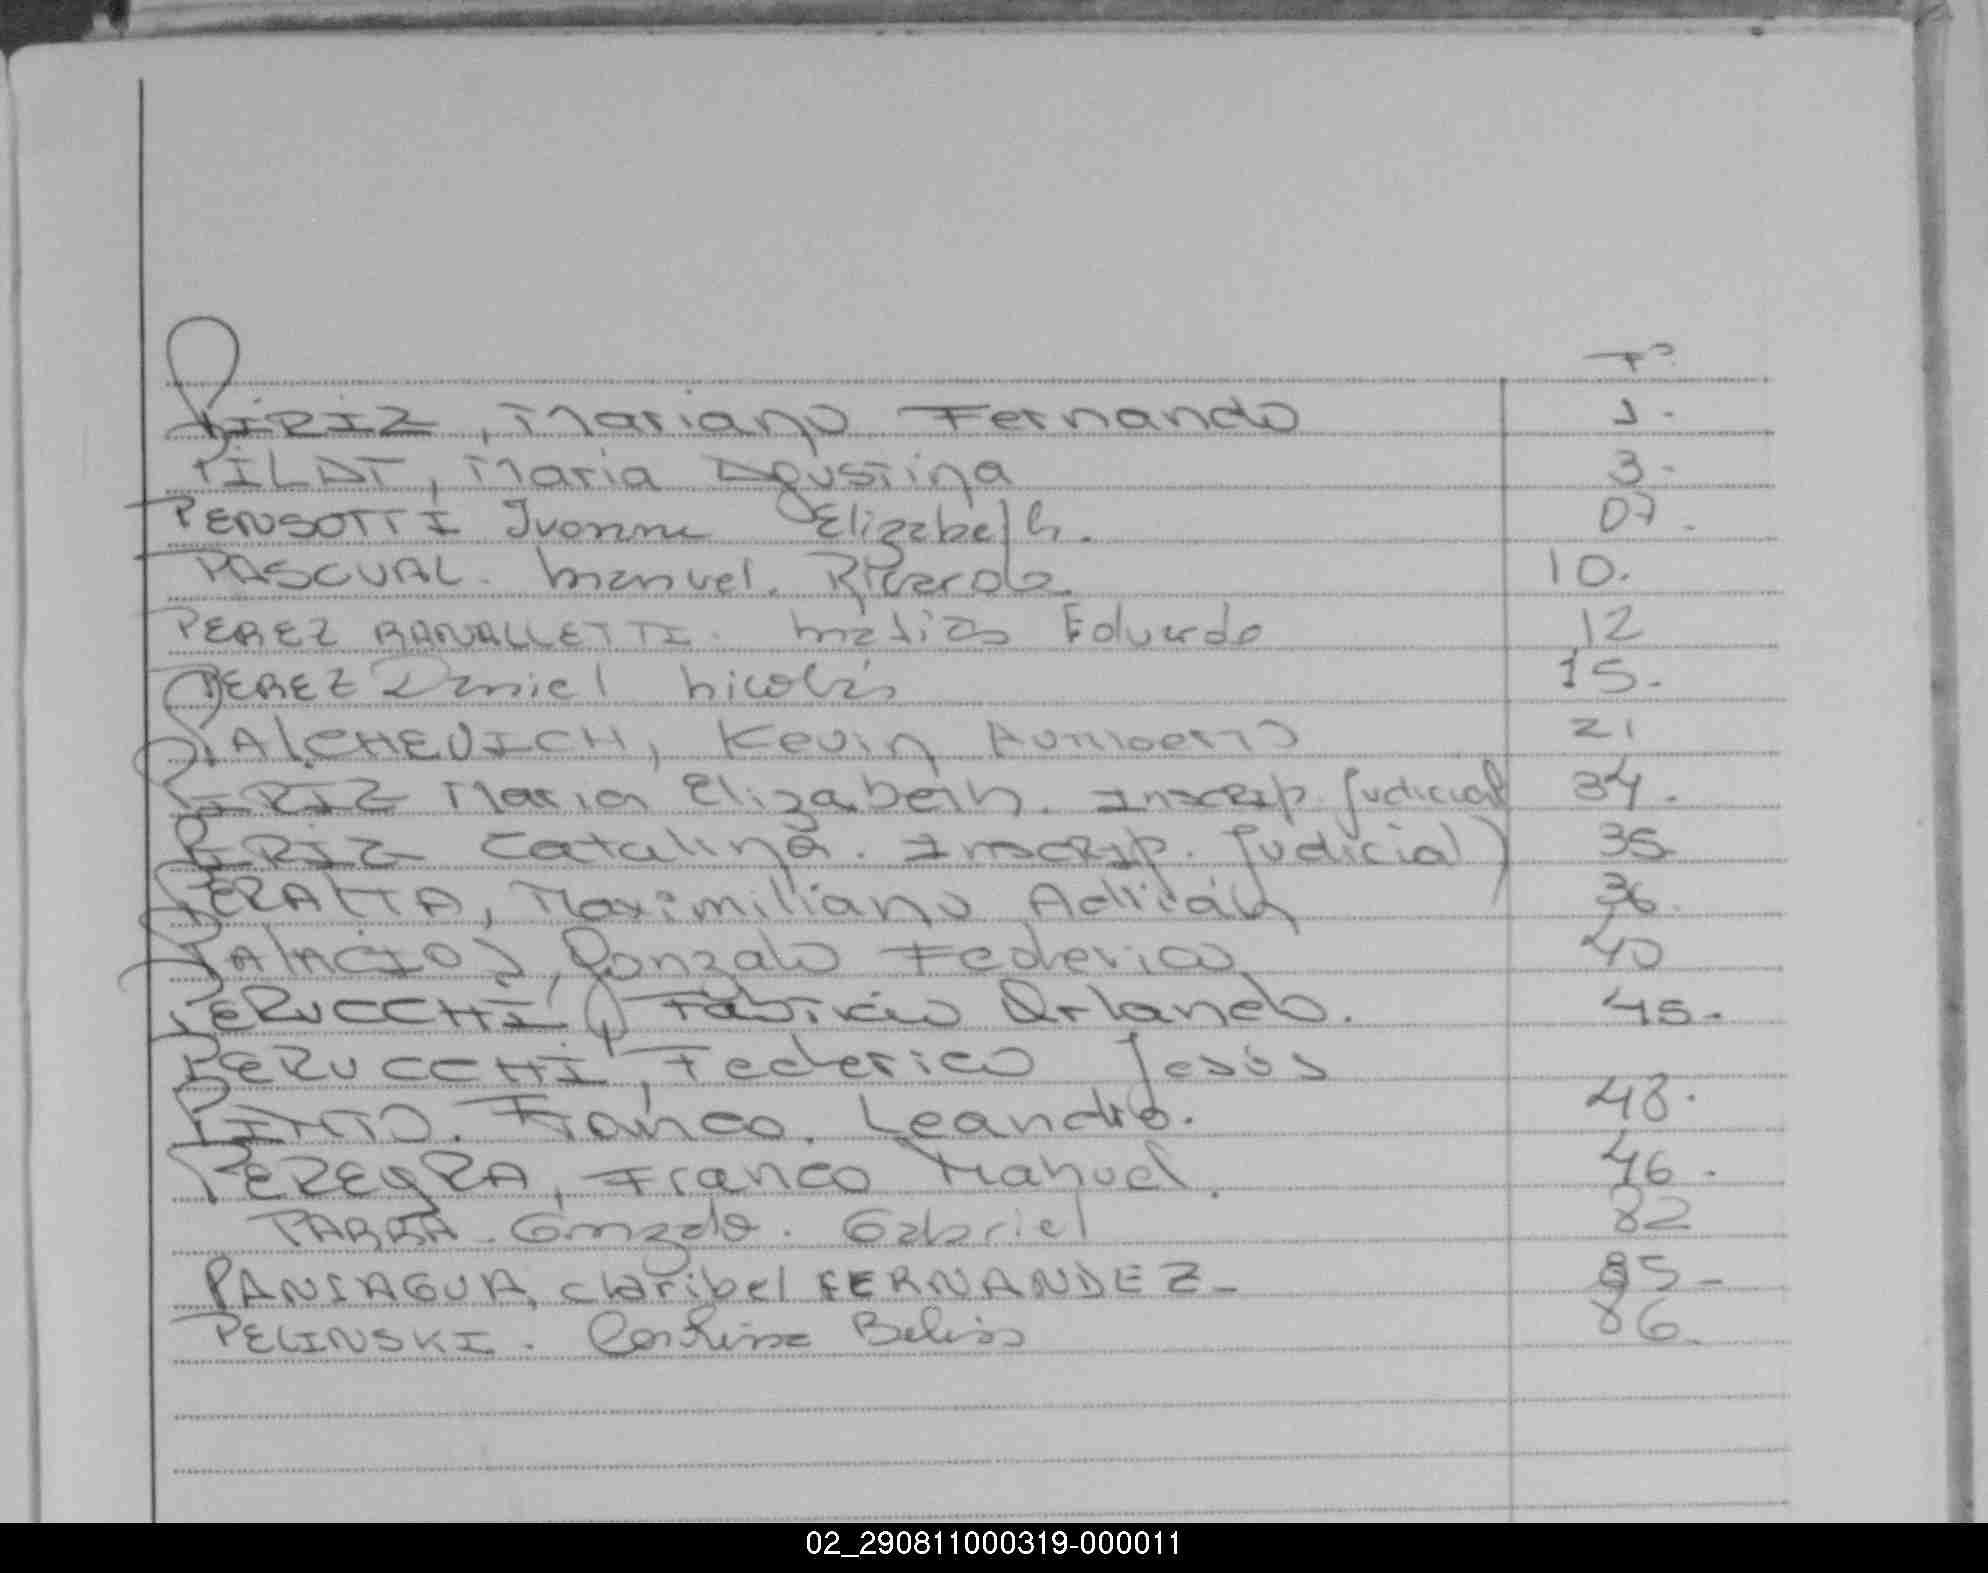 Fº
PIRIZ, Mariano Fernando 1.
PILAT, Maria Agustina 3.
PENSOTTI Ivonne Elizabeth. 07.
PASCUAL. Manuel. Ricardo. 10.
PEREZ RANALLETTI. Matias Eduardo 12
PEREZ Daniel Nicolás 15.
PALCHEVICH, Kevin Humberto 21
PIRIZ Maria Elizabeth. Inscrip. Judicial 34.
PIRIZ Catalina. Inscrip. Judicial) 35
PERALTA, Maximiliano Adrián 36.
PALACIOS, Gonzalo Federico 40
PERUCCHI, Fabricio Orlando. 45.
PERUCCHI, Federico Jesús
PINTO. Franco. Leandro. 48.
PEREYRA, Franco Manuel. 46.
PARRA. Gonzalo. Gabriel 82
PANIAGUA, claribel FERNANDEZ- 85-
PELINSKI. Belén 86.
02_290811000319-000011